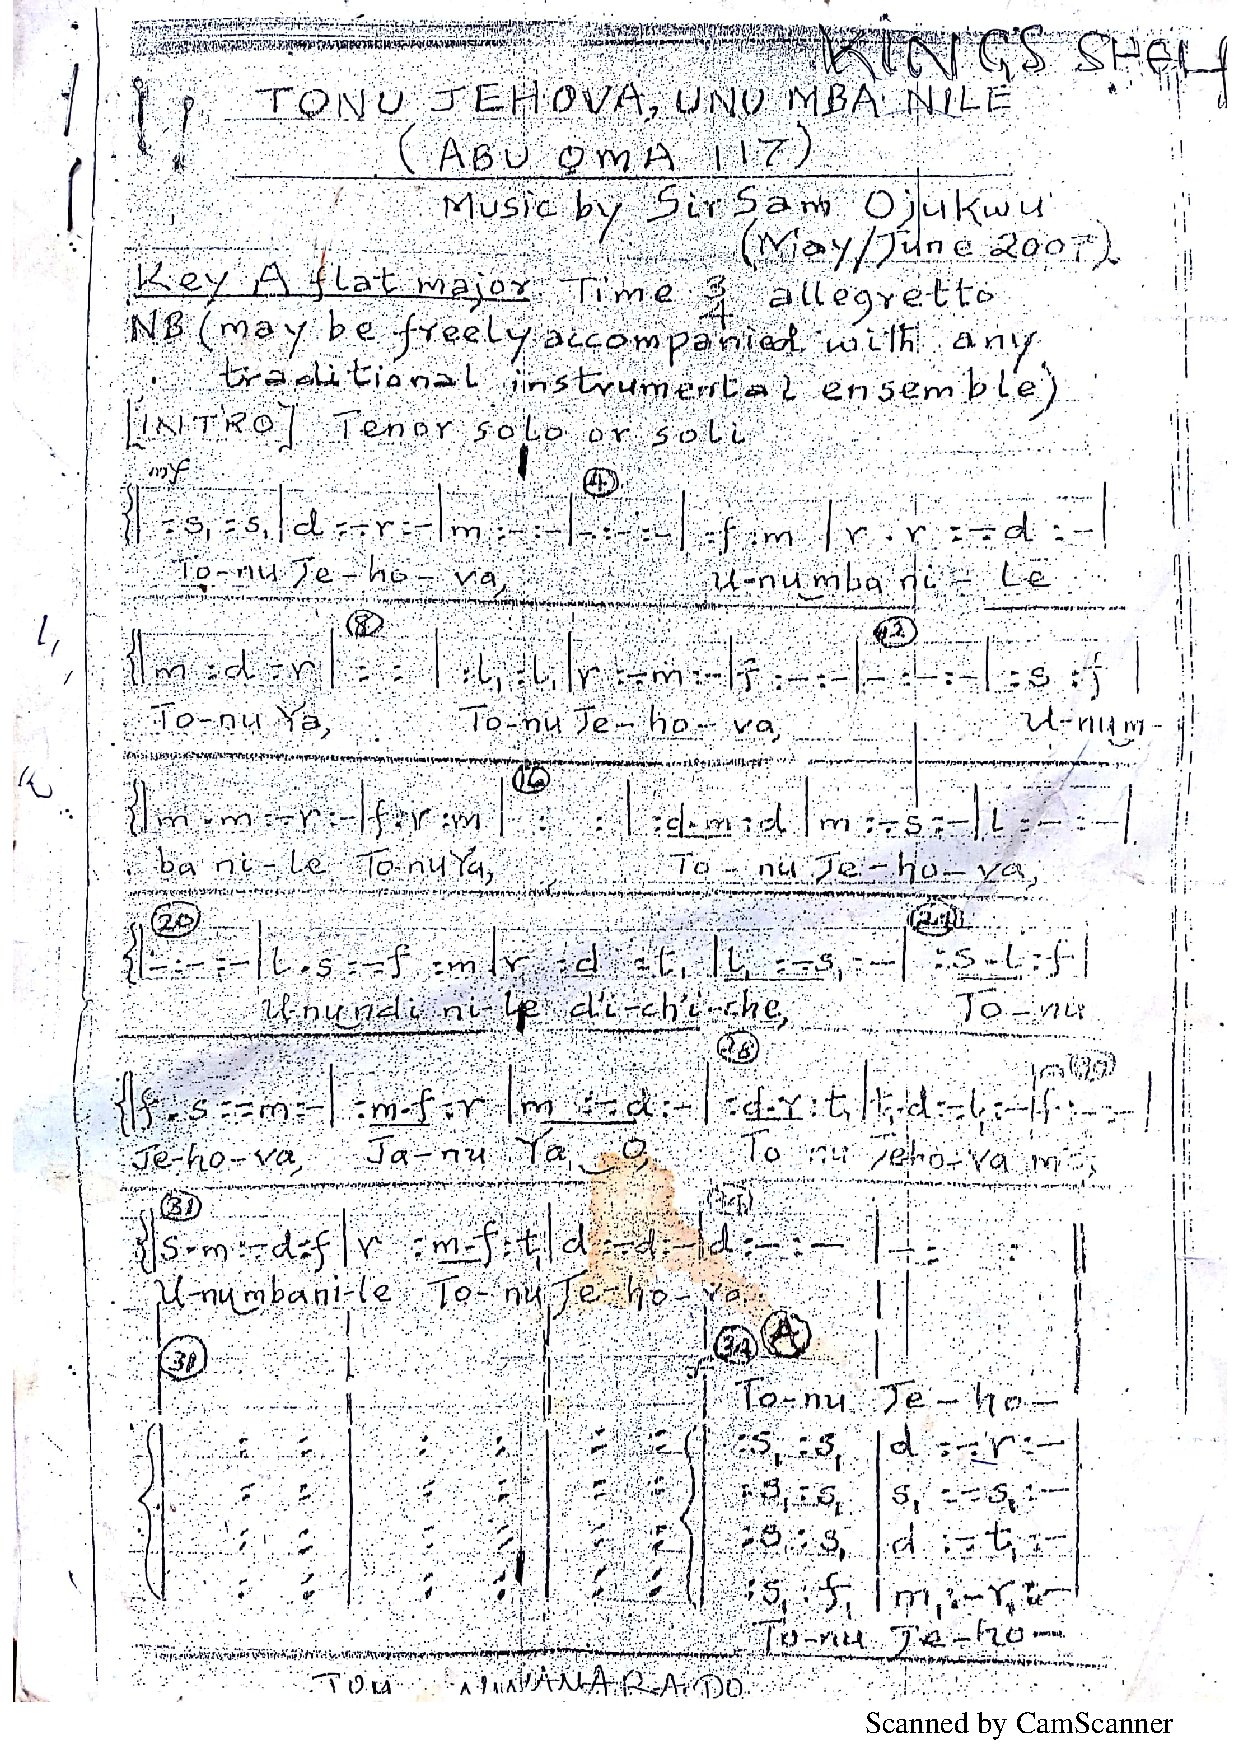 KINGS SHELF
TONU JEHOVA, UNU MBA NILE
(ABU ỌMA 117)
Music by Sir Sam Ojukwu
(May/June 2007)
Key A flat major Time 3/4 allegretto
NB (may be freely accompanied with any
traditional instrumental ensemble)
[INTRO] Tenor solo or soli
mf
4
{| :s₁ :s₁ | d :-.r :- | m :- :- | - :- :- | :f :m | r . r :-.d :- |
To-nu Je-ho-va, U-numba ni-le
8 12
{| m :d :r | : : | :l₁ :l₁ | r :-.m :- | f :- :- | - :- :- | :s :f |
To-nu Ya, To-nu Je-ho-va, U-num-
16
{| m . m :-.r :- | f :r :m | : : | :d.m :d | m :-.s :- | l :- :- |
ba ni-le To-nu Ya, To-nu Je-ho-va,
20 24
{| - :- :- | l . s :-.f :m | r :d :t₁ | l₁ :-.s₁ :- | :s.l :f |
U-nu ndi ni-le di-ch'i-che, To-nu
28
{| f . s :-.m :- | :m.f :r | m :-.d :- | :d.r :t₁ | t₁.d :-.l₁ :- | f :- :- |
Je-ho-va, Ja-nu Ya, O, To nu Jeho-va m',
31
{| s.m :-.d :f | r :m.f :t₁ | d :-.d :- | d :- :- | - : : ||
U-numbani-le To-nu Je-ho-va.
31 34 A
f
To-nu Je-ho-
: : | : : | : : { :s₁ :s₁ | d :-.r :-
: : | : : | : : :s₁ :s₁ | s₁ :-.s₁ :-
: : | : : | : : :s₁ :s₁ | d :-.t₁ :-
: : | : : | : : :s₁ :f₁ | m₁ :-.r₁ :-
To-nu Je-ho-
Scanned by CamScanner